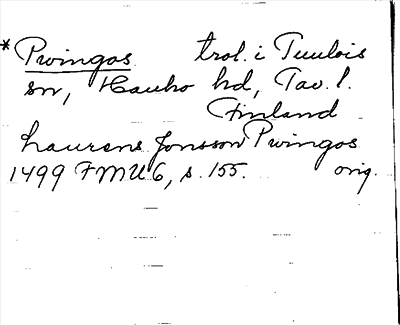 * Pwingos trol. i Tuulois
sn, Hauho hd, Tav. l.
Finland
Laurens Jönsson Pwingos
1499 FMU 6, s. 155. orig.